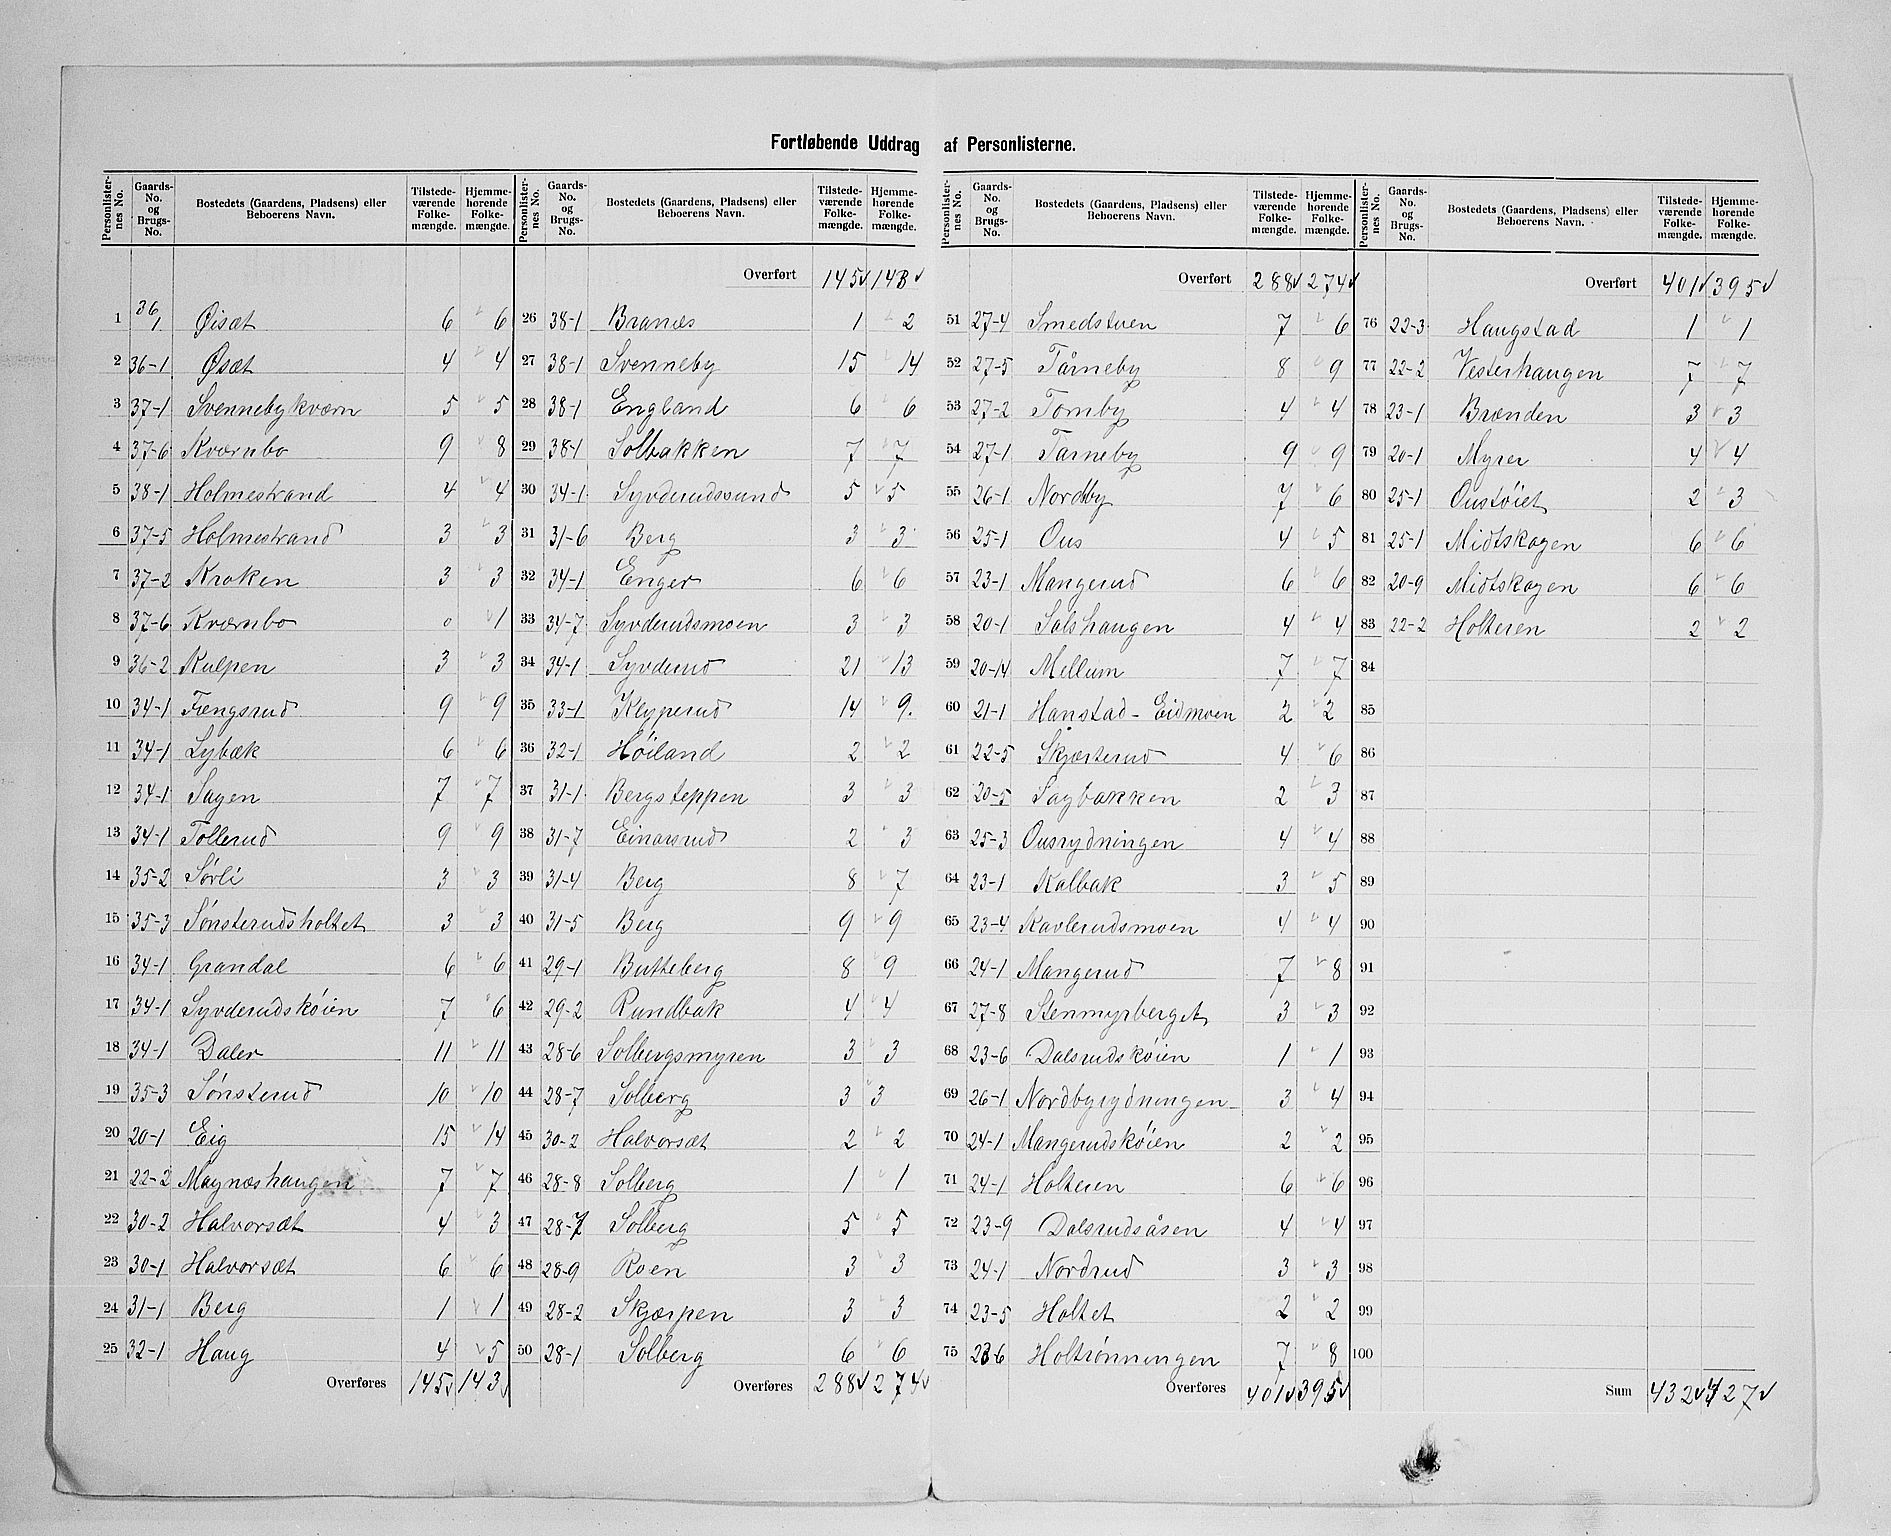 Fortløbende Uddrag af Personlisterne.
Personlister-nes No. | Gaards-No. og Brugs-No. | Bostedets (Gaardens, Pladsens) eller Beboerens Navn. | Tilstede-værende Folke-mængde. | Hjemme-hørende Folke-mængde.
1 36/1 Øisæt 6 6
2 36-1 Øsæt 4 4
3 37-1 Svennebykværn 5 5
4 37-6 Kværnbo 9 8
5 38-1 Holmestrand 4 4
6 37-5 Holmestrand 3 3
7 37-2 Kroken 3 3
8 37-6 Kværnbo 0 1
9 36-2 Kulpen 3 3
10 34-1 Fængsrud 9 9
11 34-1 Lybæk 6 6
12 34-1 Sagen 7 7
13 34-1 Tollerud 9 9
14 35-2 Sørli 3 3
15 35-3 Sønsterudsholtet 3 3
16 34-1 Grandal 6 6
17 34-1 Syvderudskøien 7 6
18 34-1 Daler 11 11
19 35-3 Sønsterud 10 10
20 20-1 Eig 15 14
21 22-2 Magnæshaugen 7 7
22 30-2 Halvorsæt 4 3
23 30-1 Halvorsæt 6 6
24 31-1 Berg 1 1
25 32-1 Haug 4 5
Overføres 145 143
Personlister-nes No. | Gaards-No. og Brugs-No. | Bostedets (Gaardens, Pladsens) eller Beboerens Navn. | Tilstede-værende Folke-mængde. | Hjemme-hørende Folke-mængde.
Overført 145 143
26 38-1 Branæs 1 2
27 38-1 Svenneby 15 14
28 38-1 England 6 6
29 38-1 Solbakken 7 7
30 34-1 Syvderudssund 5 5
31 31-6 Berg 3 3
32 34-1 Enger 6 6
33 34-7 Syvderudsmoen 3 3
34 34-1 Syvderud 21 13
35 33-1 Klyperud 14 9
36 32-1 Høiland 2 2
37 31-1 Bergsteppen 3 3
38 31-7 Einarsrud 2 3
39 31-4 Berg 8 7
40 31-5 Berg 9 9
41 29-1 Butteberg 8 9
42 29-2 Rundbak 4 4
43 28-6 Solbergsmyren 3 3
44 28-7 Solberg 3 3
45 30-2 Halvorsæt 2 2
46 28-8 Solberg 1 1
47 28-7 Solberg 5 5
48 28-9 Roen 3 3
49 28-2 Skjærpen 3 3
50 28-1 Solberg 6 6
Overføres 288 274
Personlister-nes No. | Gaards-No. og Brugs-No. | Bostedets (Gaardens, Pladsens) eller Beboerens Navn. | Tilstede-værende Folke-mængde. | Hjemme-hørende Folke-mængde.
Overført 288 274
51 27-4 Smedstuen 7 6
52 27-5 Tårneby 8 9
53 27-2 Tomby 4 4
54 27-1 Tårneby 9 9
55 26-1 Nordby 7 6
56 25-1 Ous 4 5
57 23-1 Mangerud 6 6
58 20-1 Solshaugen 4 4
59 20-14 Mellum 7 7
60 21-1 Hanstad-Eidmoen 2 2
61 22-5 Skjæsterud 4 6
62 20-5 Sagbakken 2 3
63 25-3 Ousrydningen 4 4
64 23-1 Kalbak 3 5
65 23-4 Kavlerudsmoen 4 4
66 24-1 Mangerud 7 8
67 27-8 Stenmyrberget 3 3
68 23-6 Dalsrudskøien 1 1
69 26-1 Nordbyrydningen 3 4
70 24-1 Mangerudskøien 2 2
71 24-1 Holteren 6 6
72 23-9 Dalsrudsåsen 4 4
73 24-1 Nordrud 3 3
74 23-5 Holtet 2 2
75 23-6 Holtrønningen 7 8
Overføres 401 395
Personlister-nes No. | Gaards-No. og Brugs-No. | Bostedets (Gaardens, Pladsens) eller Beboerens Navn. | Tilstede-værende Folke-mængde. | Hjemme-hørende Folke-mængde.
Overført 401 395
76 22-3 Haugstad 1 1
77 22-2 Vesterhaugen 7 7
78 23-1 Brænden 3 3
79 20-1 Myrer 4 4
80 25-1 Oustøiet 2 3
81 25-1 Midtskogen 6 6
82 20-9 Midtskogen 6 6
83 22-2 Holteren 2 2
84
85
86
87
88
89
90
91
92
93
94
95
96
97
98
99
100
Sum 432 427